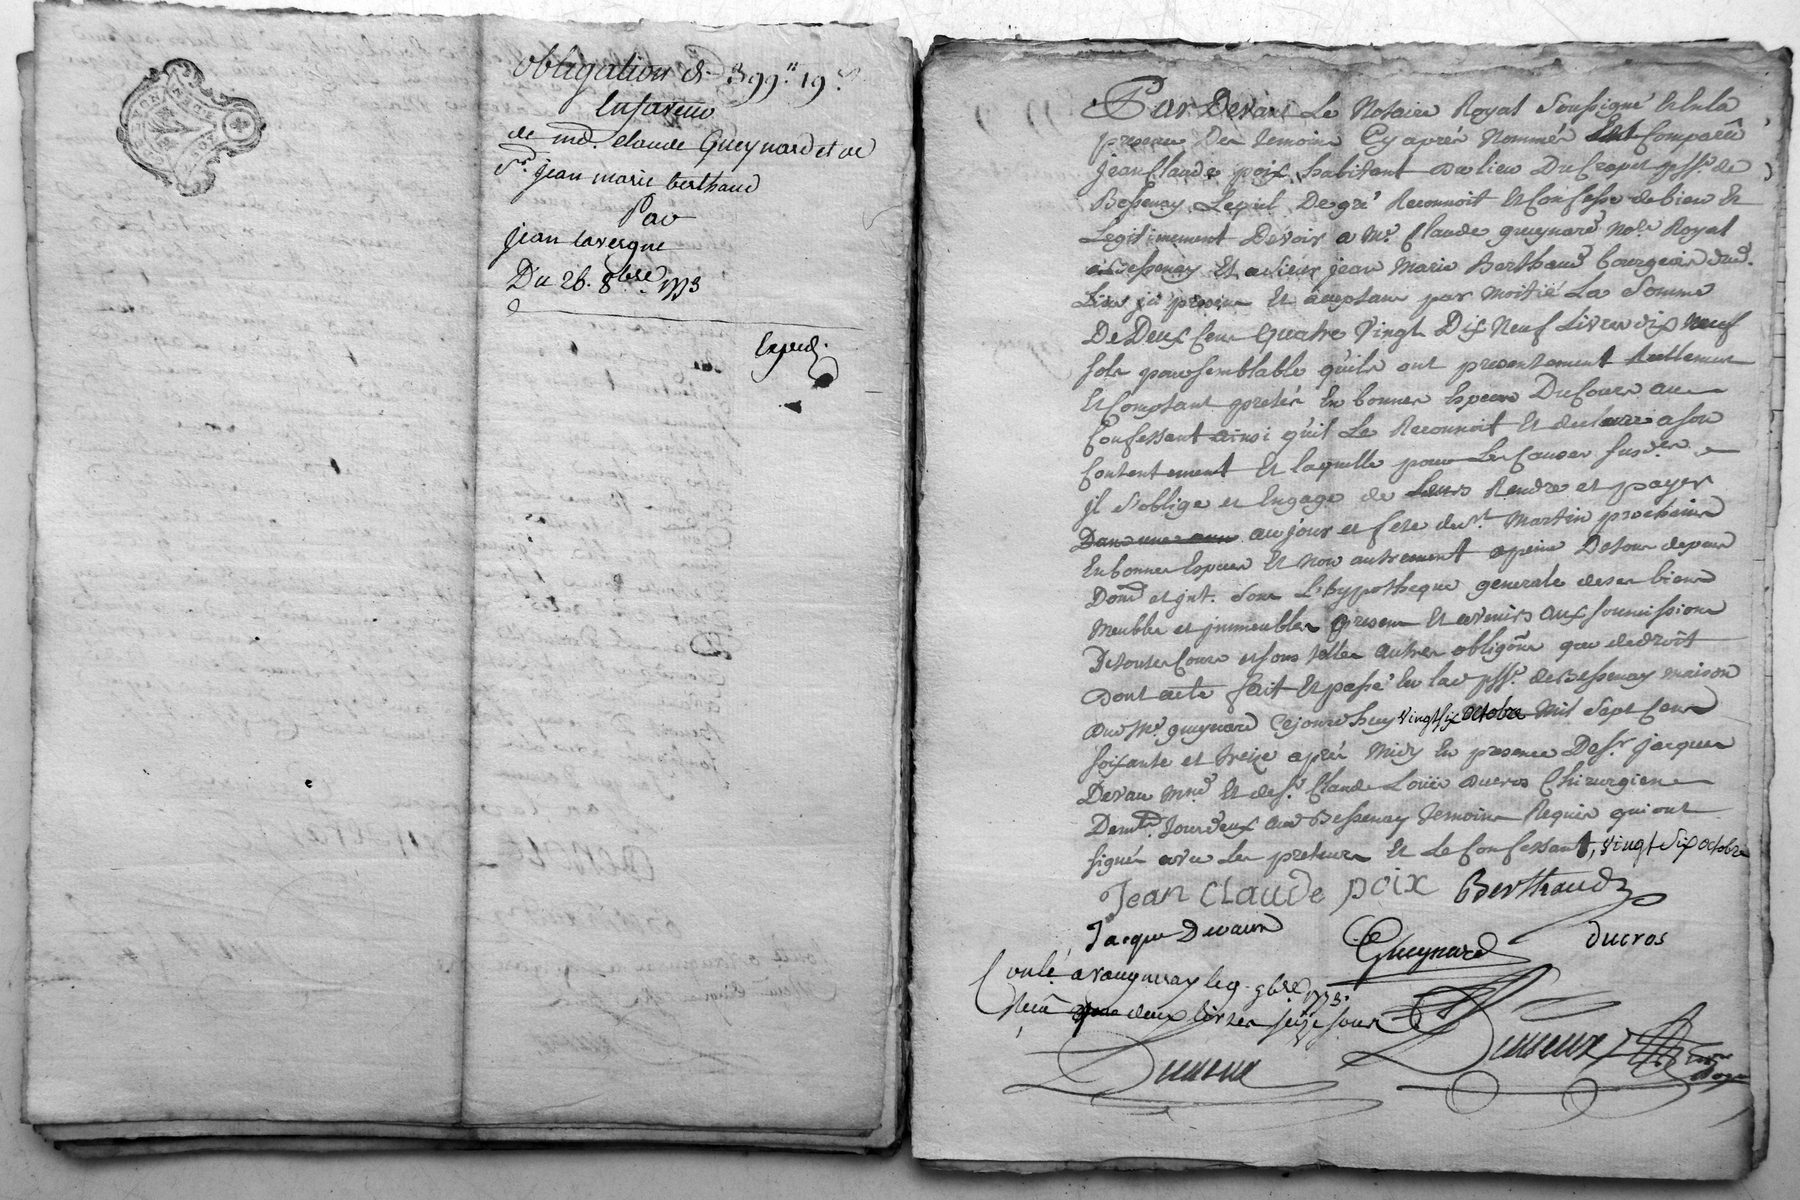 obligation de 399.# 19 s.
En faveur
de me. claude Gueynard et de
Sr. jean marie berthaud
Par
jean lavergne
Du 26. 8bre. 1773
Exped.
Par Devant Le Notaire Royal Soussigné Et En la
presence Des temoins Cy aprés Nommés Est Comparu
jean Claude poix habitant du lieu Du Crapet psse. de
Bessenay Lequel De gré Reconnoit Et Confesse de bien Et
Legitimement Devoir a Me. Claude gueynard Nore. Royal
a Bessenay Et a sieur jean Marie Berthaud bourgeois dud.
Lieu jci presens Et acceptans par Moitié La Somme
De Deux Cens quatre Vingt Dix Neuf Livres dix neuf
sols pour semblable qu'ils ont presentement Reellement
Et Comptant pretés En bonnes Especes Du Cours au
Confessant ainsi qu'il Le Reconnoit Et declare a son
Contentement Et laquelle pour Les Causes susd.es
jl s'oblige et Engage de Leurs Rendre et payer
Dans une ann au jour et fete de st. Martin prochaine
En bonnes Especes Et Non autrement a peine De tous depens
Dom. et jnt. sous L'hypotheque generale de ses biens
Meubles et jmmeubles presens Et avenirs aux soumissions
De toutes Cours et sous telles autres obligons. que de droit
Dont acte fait Et passé En lad. psse. de Bessenay maison
dud. Me. gueynard Cejourd'huy vingt six octobre Mil Sept Cens
soixante et treize aprés Midy En presence De sr. jacques
Devau Md. Et de sr. Claude Loüis ducros Chirurgiens
Demts. tous deux aud. Bessenay temoins Requis qui ont
signés avec Les preteurs Et Le Confessant, vingt Six octobre
Jean CLauDe poix Berthaud
Jacque Devaux Gueynard ducros
Conlé. a vaugneray le 9. 9bre. 1773.
Recu deux livres seize sous
Dumont